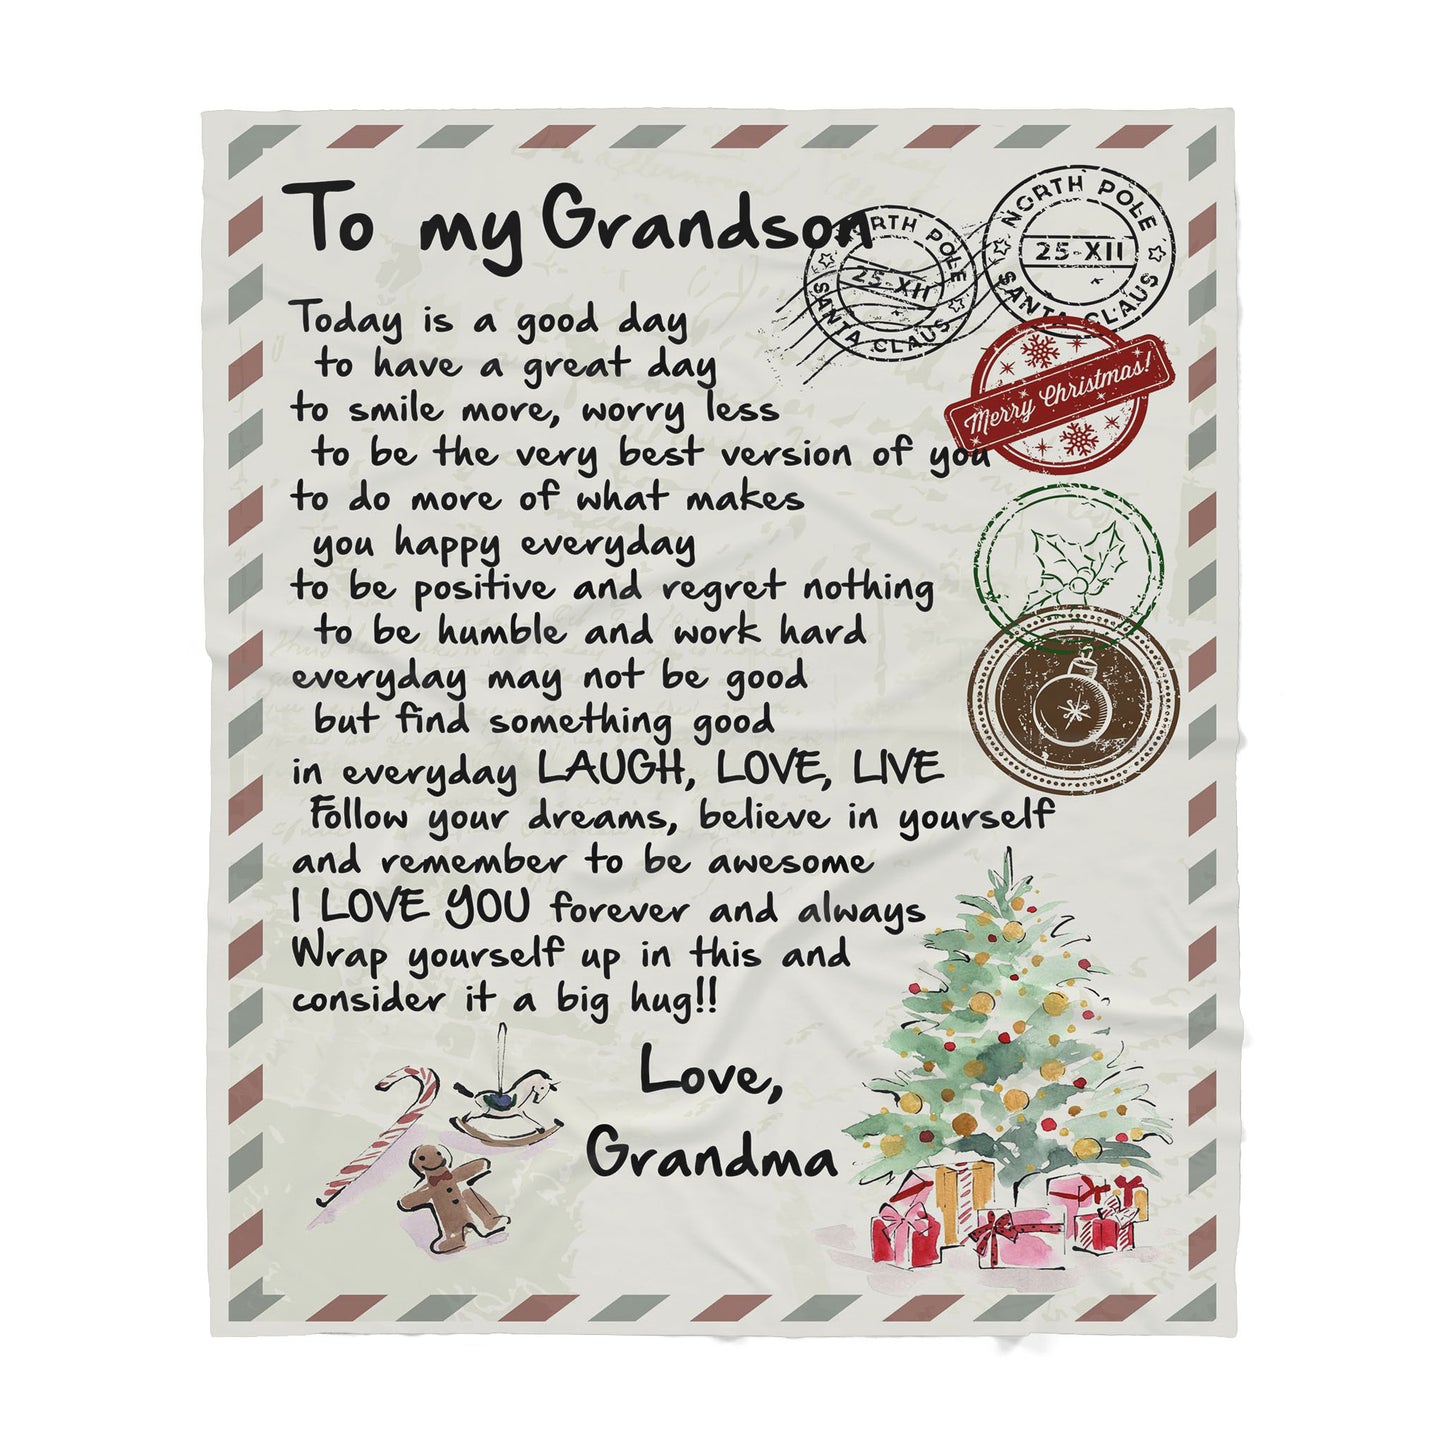 To my Grandson
RTH POLE
25-XII
SANTA CLAUS
NORTH POLE
25-XII
SANTA CLAUS
Merry Christmas!
Today is a good day
to have a great day
to smile more, worry less
to be the very best version of you
to do more of what makes
you happy everyday
to be positive and regret nothing
to be humble and work hard
everyday may not be good
but find something good
in everyday LAUGH, LOVE, LIVE
Follow your dreams, believe in yourself
and remember to be awesome
I LOVE YOU forever and always
Wrap yourself up in this and
consider it a big hug!!
Love,
Grandma